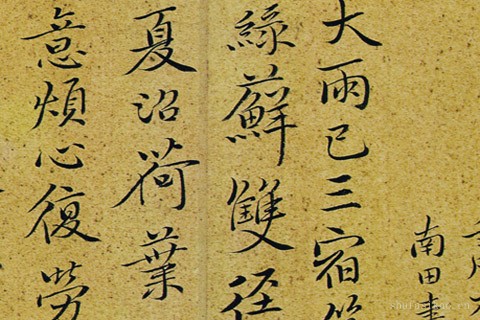 南田書
大雨已三宿
綠蘚雙徑
夏沼荷葉
意煩心復勞